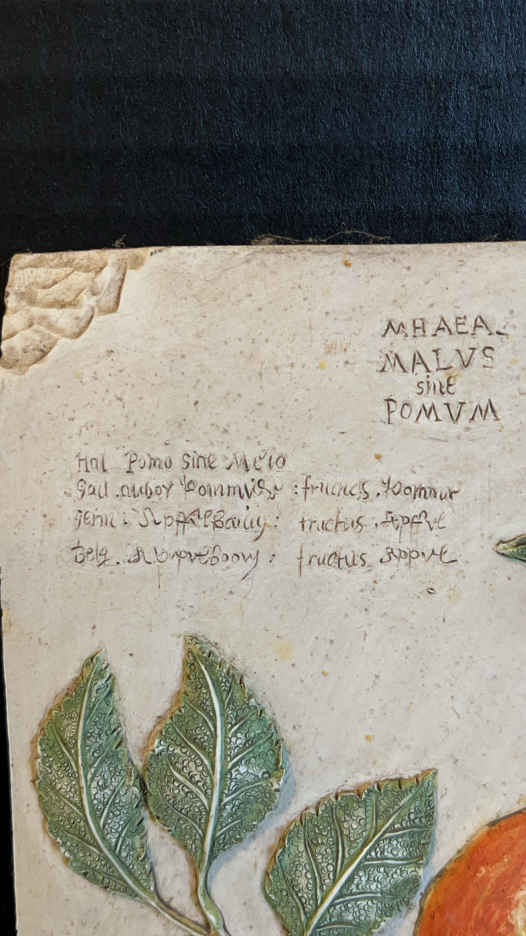 MHAEA.
MALVS
sine
POMVM
Ital Pomo sine Melo
Gall. arbor Pommier : fructus. Pommer
Germ: Apffelbaum: fructus. Apffel
Belg. Appelboom: fructus Appel